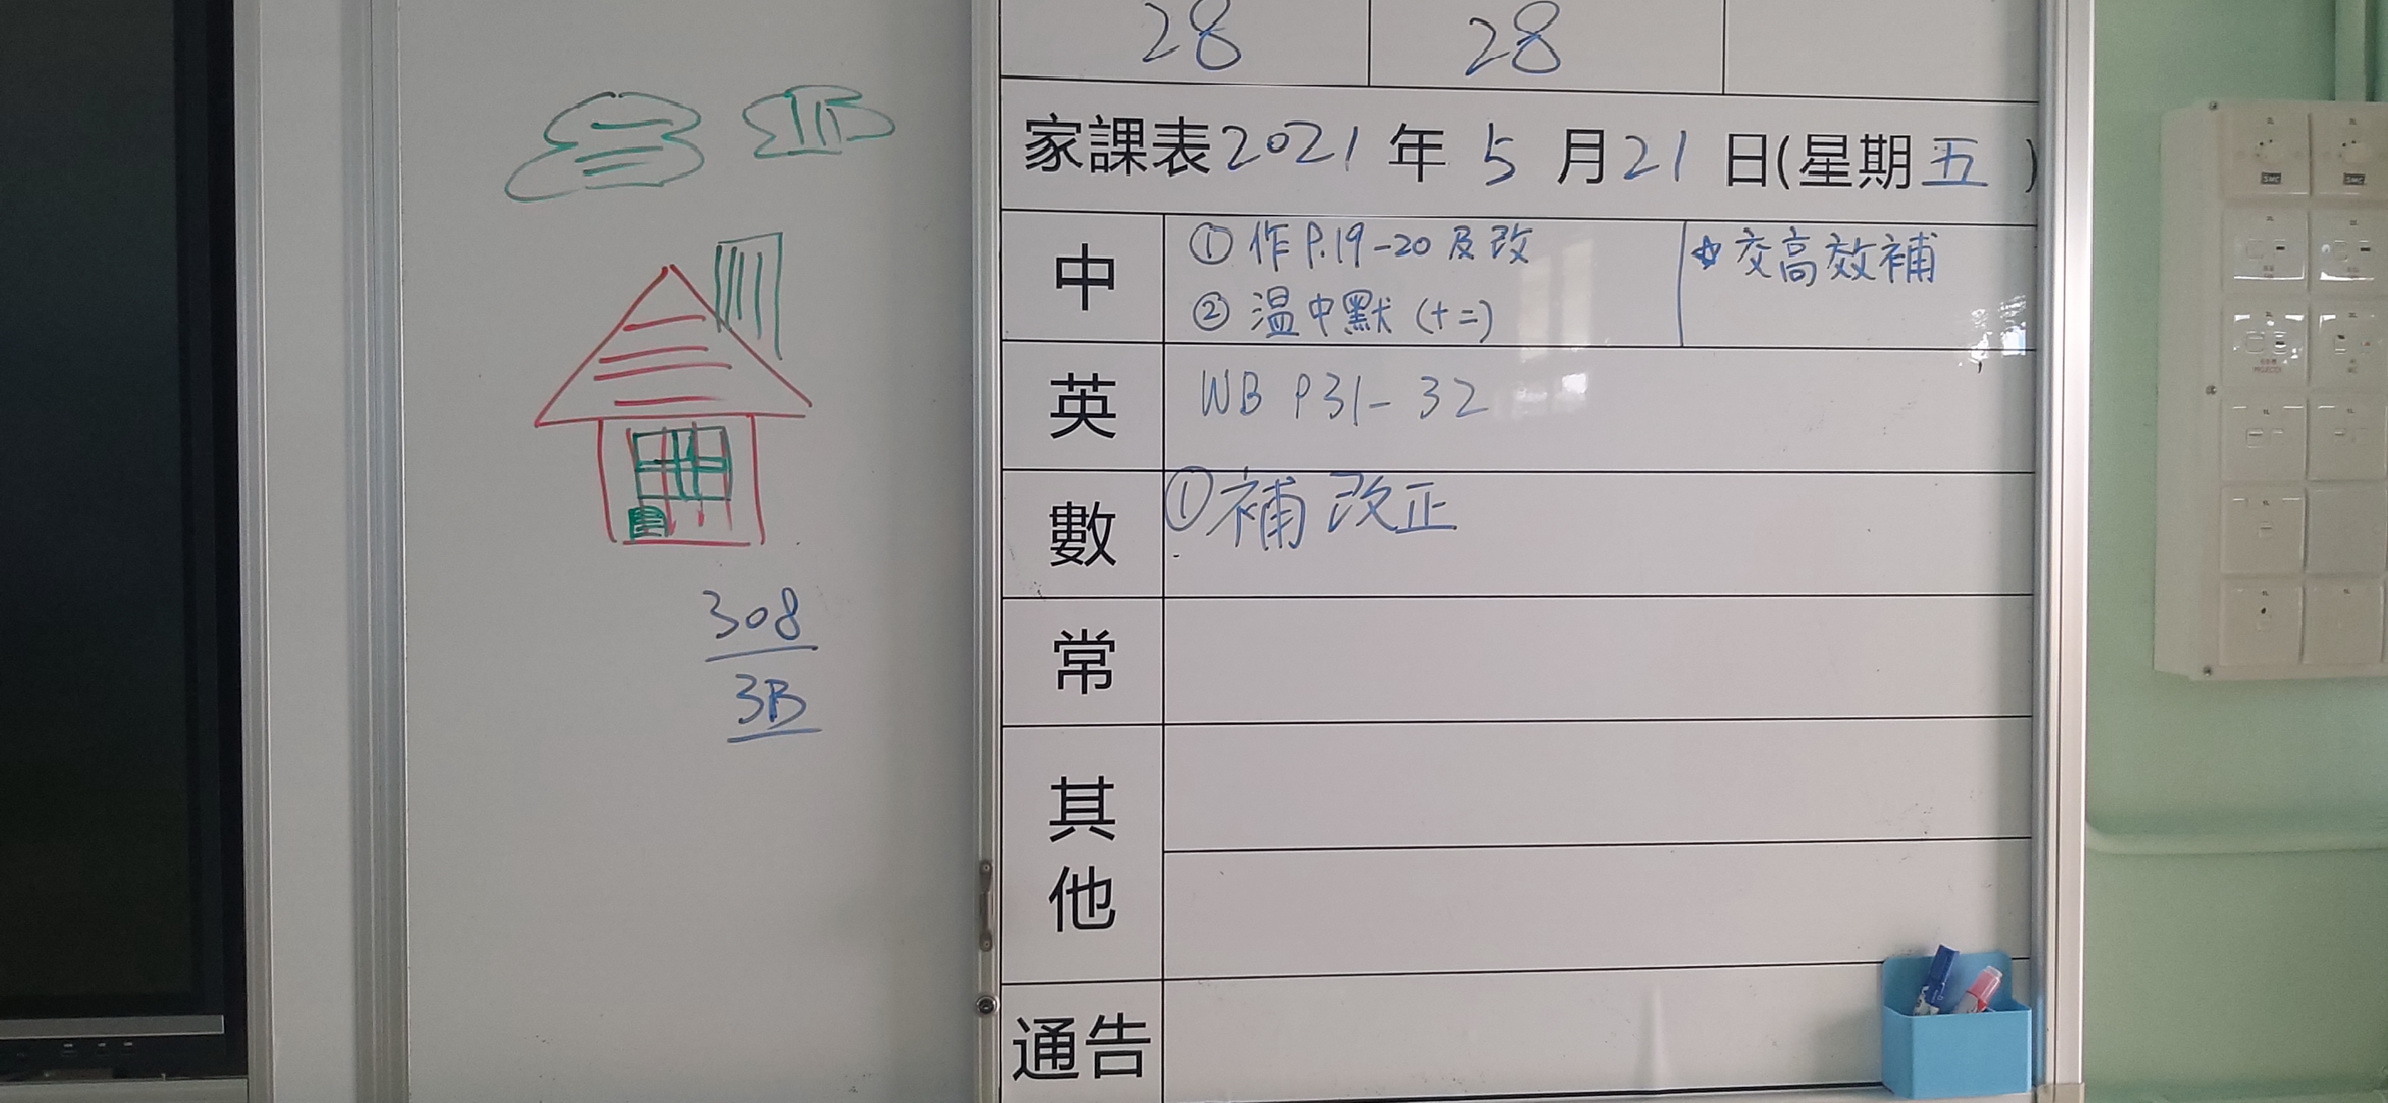 28 28
家課表2021年5月21日(星期五)
中
①作P.19-20及改
②溫中默(十二)
☆交高效補
英 WB P31-32
數 ①補改正
常
其他
通告
308
3B